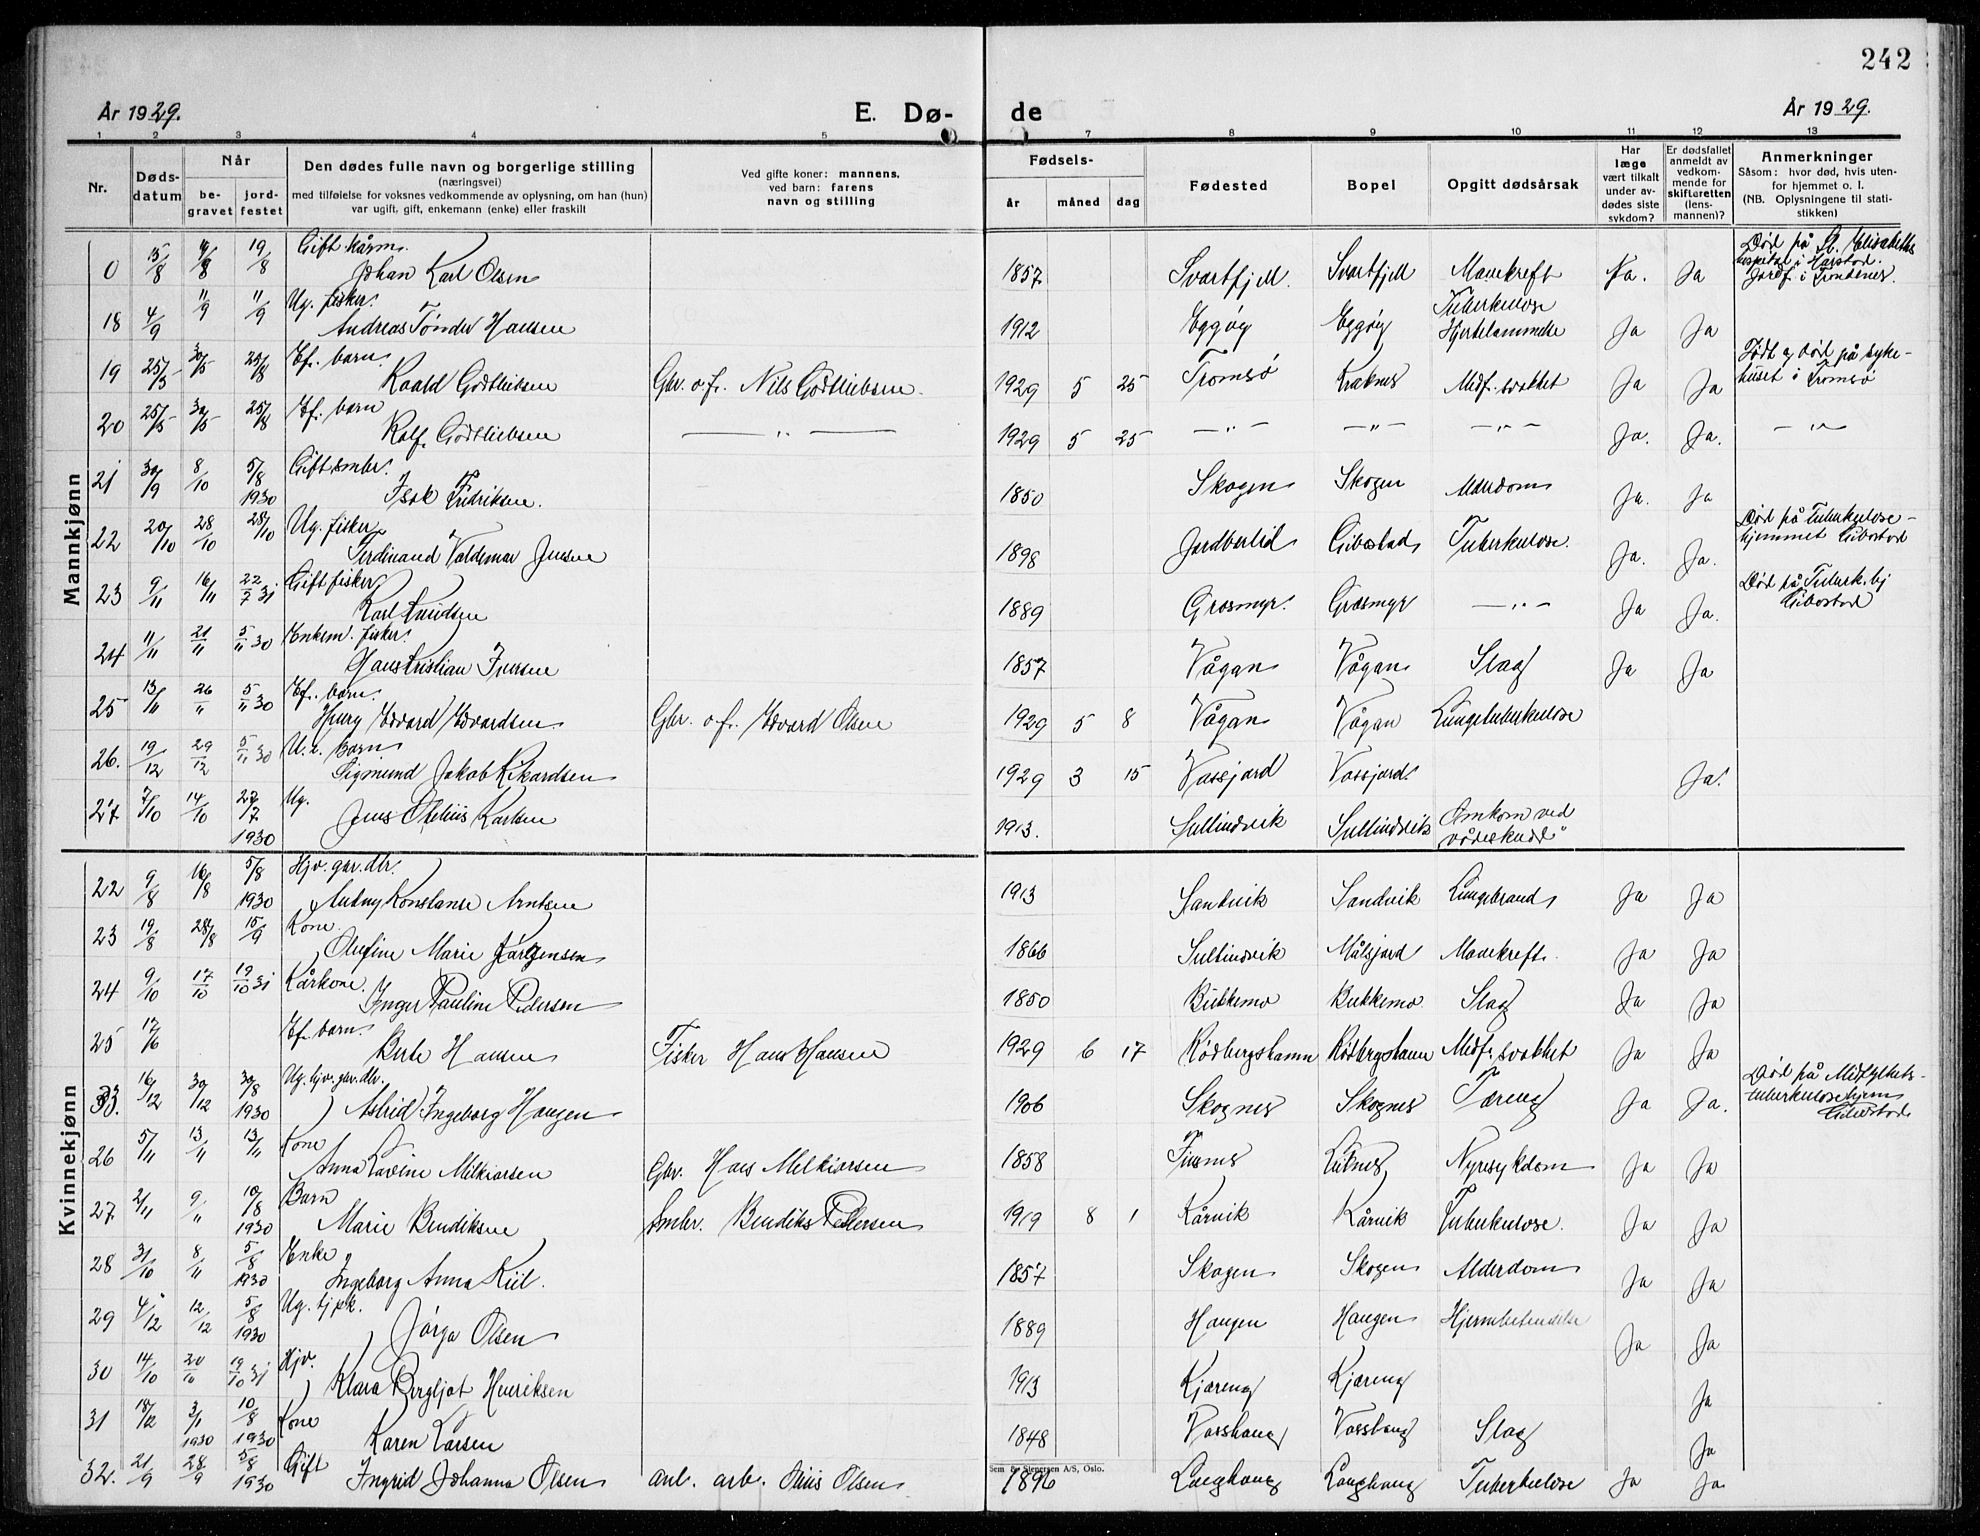 242
År 1929.
E. Dø-
de
År 1929.
1 2 3 4 5 7 8 9 10 11 12 13
Nr.
Døds-
datum
Når
be-
gravet
jord-
festet
Den dødes fulle navn og borgerlige stilling
(næringsvei)
med tilføielse for voksnes vedkommende av oplysning, om han (hun)
var ugift, gift, enkemann (enke) eller fraskilt
Ved gifte koner: mannens,
ved barn: farens
navn og stilling
Fødsels-
år måned dag
Fødested
Bopel
Opgitt dødsårsak
Har
læge
vært tilkalt
under av-
dødes siste
sykdom?
Er dødsfallet
anmeldt av
vedkom-
mende for
skifteretten
(lens-
mannen)?
Anmerkninger
Såsom: hvor død, hvis uten-
for hjemmet o. l.
(NB. Oplysningene til stati-
stikken)
Mannkjønn
0 15/8 19/8 Gift kårm.
Johan Karl Olsen 1857 Svartfjell Svartfjell Mavekreft Ja. Ja Død på St. Elisabeths
hospital i Harstad.
Jordf. i Trondenes.
18 4/9 11/9 11/9 Ug. fisker.
Andreas Tønder Hansen 1912 Eggøy Eggøy Tuberkulose
Hjertelammelse Ja Ja
19 25/5 30/5 25/8 Ef. barn.
Roald Godtliebsen Gbr. o. f. Nils Godtliebsen 1929 5 25 Tromsø Kraknes Medf. svakhet Ja Ja Født og død på syke-
huset i Tromsø
20 25/5 30/5 25/8 Ef. barn
Rolf Godtliebsen — " — 1929 5 25 — " — — " — — " — Ja. Ja. — " —
21 30/9 8/10 5/8 1930 Gift smbr.
Isak Fredriksen. 1850 Skogen Skogen Alderdom Ja. Ja
22 20/10 28/10 28/10 Ug. fisker
Ferdinand Valdemar Jensen 1898 Jordbærlid Gibostad Tuberkulose. Ja. Ja. Død på Tuberkulose-
hjemmet Gibostad
23 9/11 16/11 22/7 31 Gift fisker
Karl Knudsen 1889 Grasmyr. Grasmyr — " — Ja Ja. Død på Tuberk. hj
Gibostad
24 11/11 21/11 5/11 30 Enkem. fisker.
Hans Kristian Iversen 1857 Vågan Vågan Slag Ja Ja
25 13/11 26/11 5/11 30 Ef. barn.
Henry Edvard Edvardsen Gbr. o. f. Edvard Olsen 1929 5 8 Vågan Vågan Lungetuberkulose
26. 19/12 29/12 5/11 30 U.e. Barn
Sigmund Jakob Rikardsen 1929 3 15 Vassjord Vassjord Ja.
27 7/10 14/10 27/7 1930 Ug.
Jens Otelius Karlsen 1913. Sultindvik Sultindvik Omkom ved
vådeskudd"
Kvinnekjønn
22 9/8 16/8 5/8 1930 Hjv. gbr. dtr.
Antny Konstanse Arntsen 1913 Sandvik Sandvik Lungebrand Ja Ja
23 19/8 28/8 15/9 Kone.
Olufine Marie Jørgensen 1866 Sultindvik Målsjord Mavekreft. Ja Ja
24 9/10 17/10 19/10 31 Kårkone.
Inger Pauline Pedersen 1850 Bukkemo Bukkemo Slag Ja Ja
25 17/6 Ef. barn.
Berle Hansen Fisker Hans Hansen 1929 6 17 Rødbergshamn Rødbergshamn Medf. svakhet Ja Ja
33. 16/12 30/12 30/8 1930 Ug. hjv. gbr. dtr.
Astrid Ingeborg Haugen 1906 Skognes Skognes Tæring Ja Ja. Død på Midtfylkets-
tuberkulosehjem
Gibostad
26 5/11 13/11 13/11 Kone
Anna Lavine Melkiorsen Gbr. Hans Melkiorsen 1858 Finsnes Leiknes Nyresykdom Ja Ja
27 2/11 9/11 10/8 1930 Barn
Marie Bendiksen Smbr. Bendiks Pedersen 1919 8 1 Kårvik Kårvik Tuberkulose. Ja Ja
28 31/10 8/11 5/8 1930 Enke
Ingeborg Anna Kiil. 1857 Skogen Skogen Alderdom Ja Ja
29 4/12 12/12 5/8 1930 Ug. tjpk.
Jørga Olsen 1889 Haugen Haugen Hjernebetendelse Ja Ja
30 14/10 20/10 19/10 31 Hjv.
Klara Bergljot Henriksen 1913 Kjæreng Kjæreng Ja
31 18/12 3/1 1930 10/8 1930 Kone
Karen Larsen 1848 Vasshaug Vasshaug Slag Ja
32. 21/9 28/9 5/8 1930 Gift
Ingrid Johanna Olsen anl. arb. Olsen 1896 Langhaug Langhaug Tuberkulose Ja Ja
Sem & Stenersen A/S, Oslo.